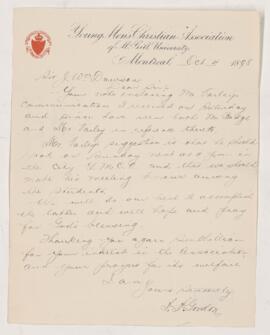 Young Men's Christian Association
of McGill University
Montreal, Oct 11 1898
Sir J. Wm Dawson
Dear Sir,
Your note enclosing Mr Farley's
communication I received on Saturday
and since have seen both Mr Budge
and Mr Farley in reference thereto
Mr Farley's suggestion is that he should
speak on Sunday next at 4 P.M. in
the City Y.M.C.A. and that we should
make his meeting known among
the students.
We will do our best to accomplish
the latter and will hope and pray
for God's blessing.
Thanking you again Sir William
for your interest in the Association
and your prayers for its welfare
I am
Yours sincerely
Gordon